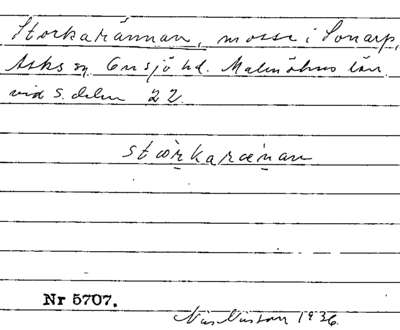 Storkarännan, mosse i Sonarp,
Asks sn. Onsjö hd. Malmöhus län
vid S. delen 22
stꜵrkaræ̀nan
Nr 5707.
Nils Nilsson 1936